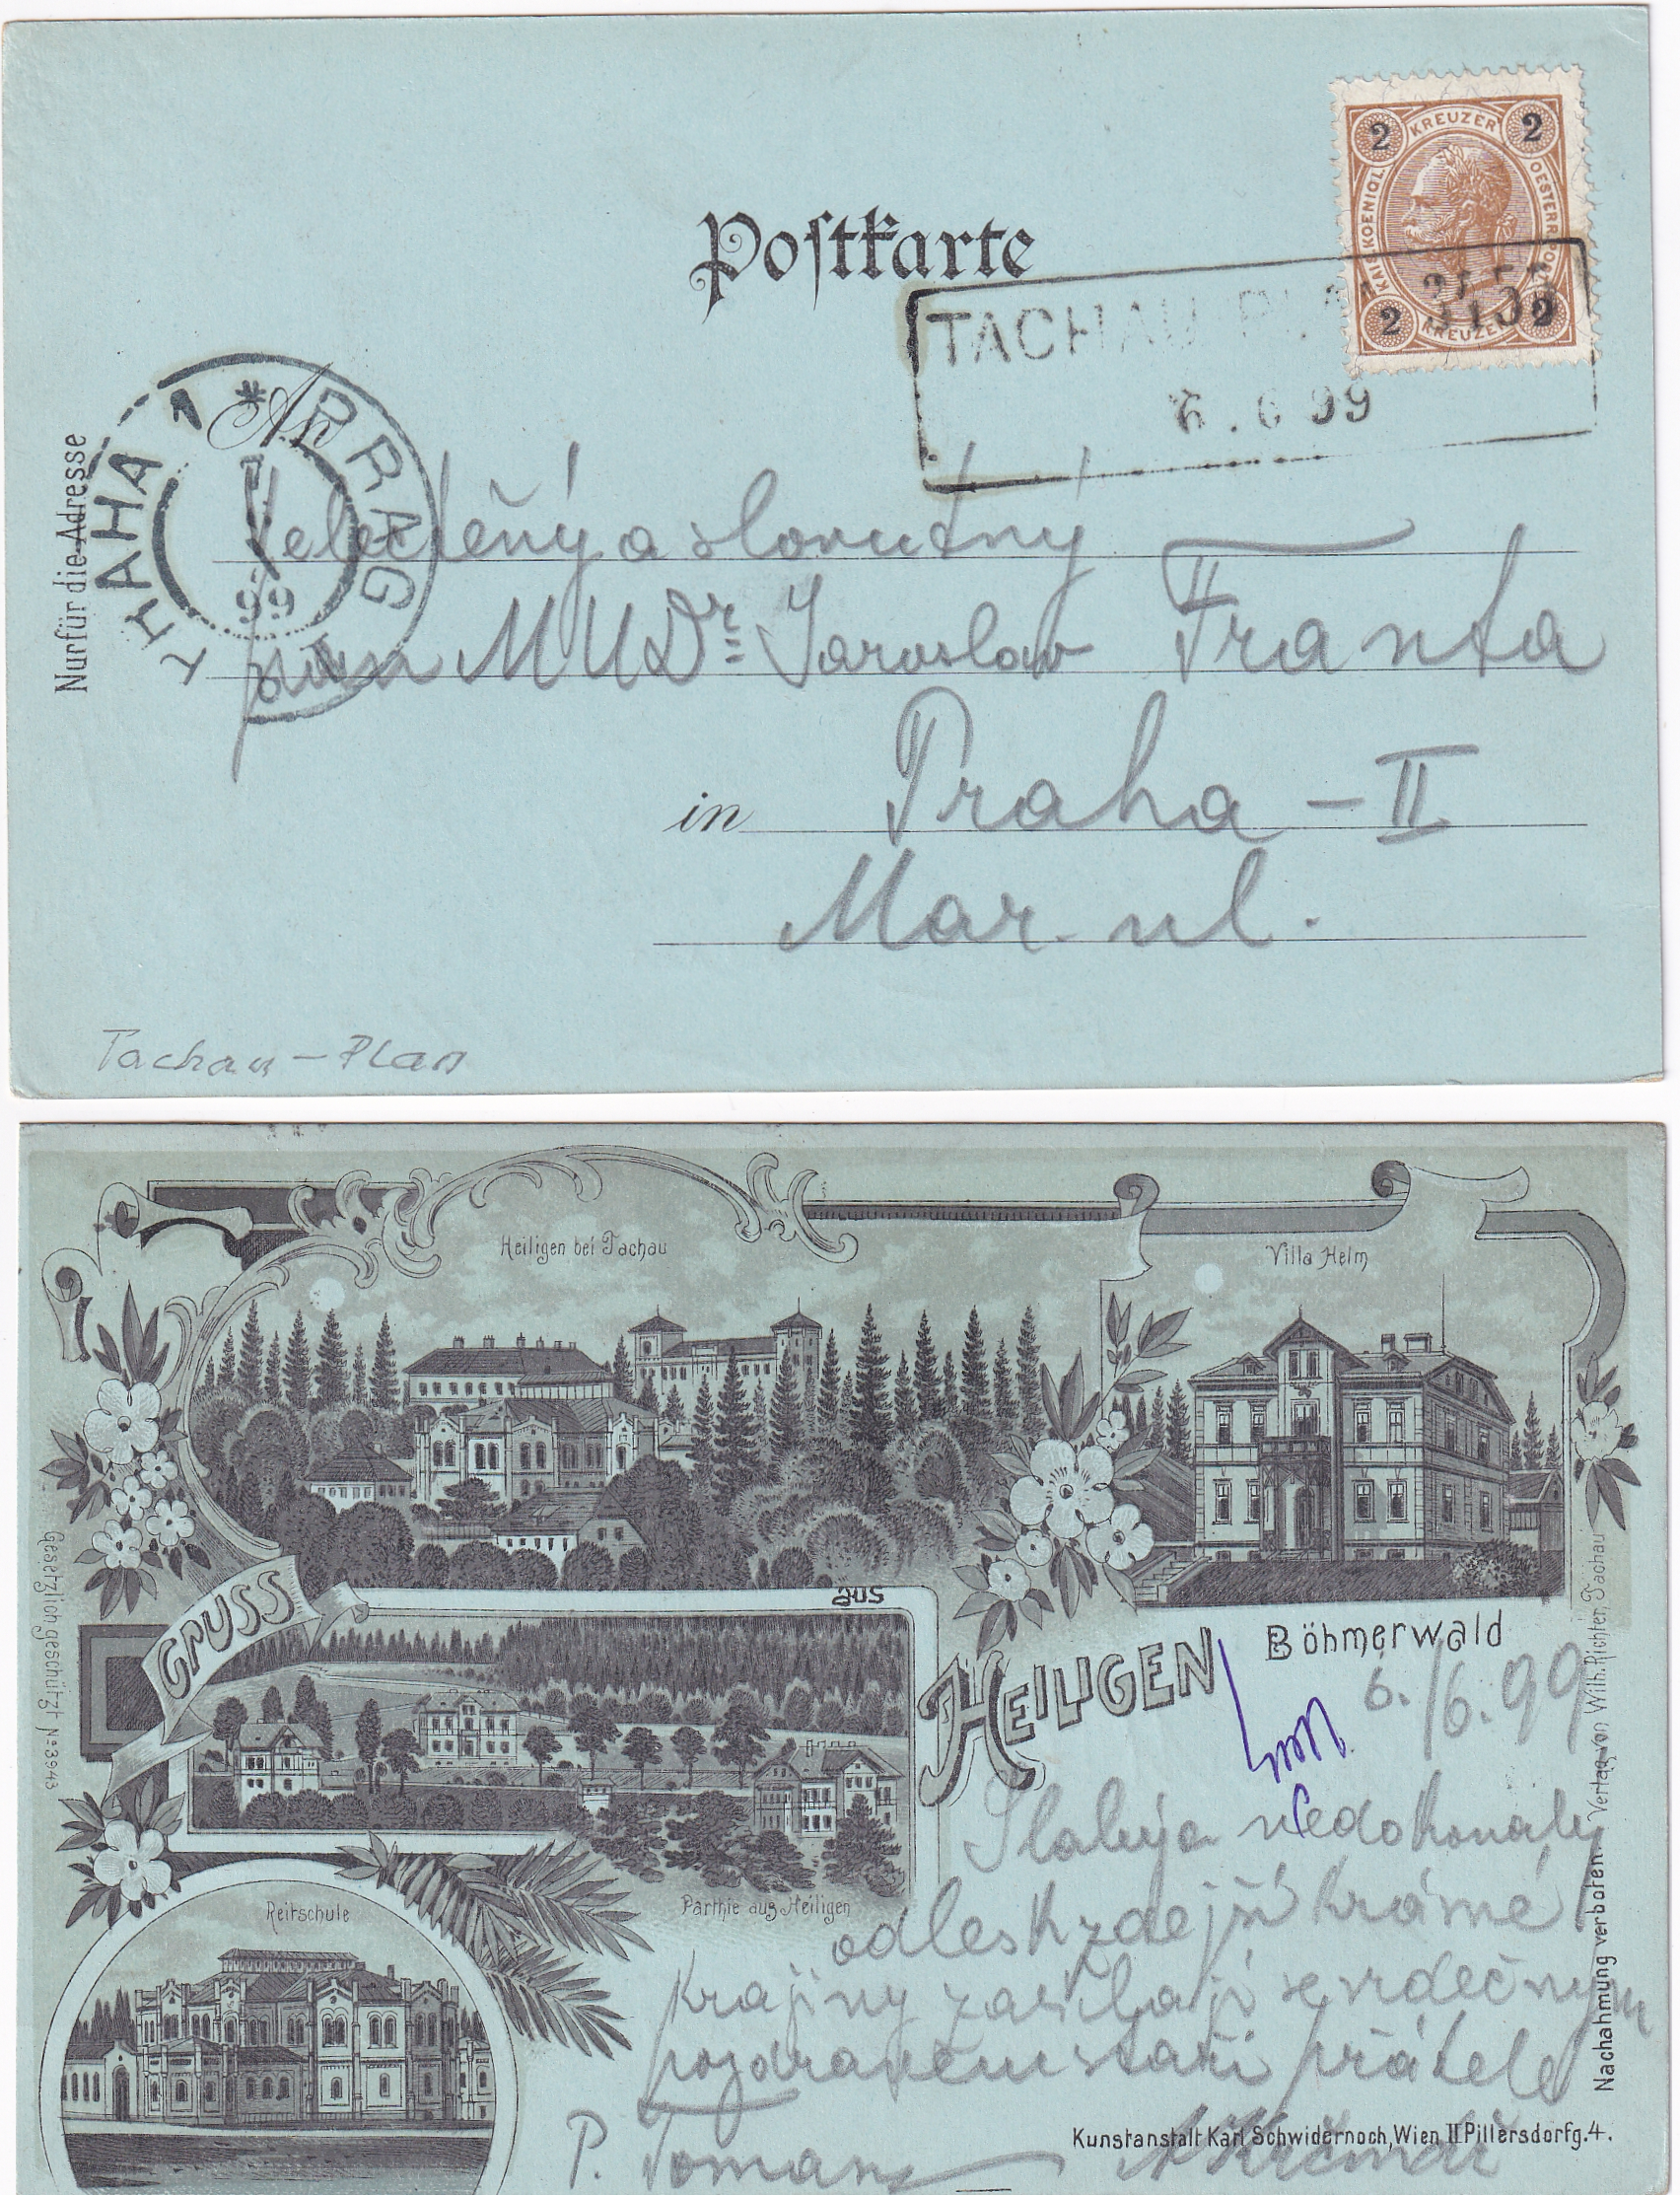 2 KREUZER 2
KAIS. KOENIGL. OESTERR. POST
2 KREUZER 2
Postkarte
TACHAU
6.6 99
PRAG
PRAHA 1
99
Nur für die Adresse
An
Velectěný a slovutný
pan MUDr. Jaroslav Franta
in Praha - II
Mar. ul.
Tachau - Plan
Heiligen bei Tachau
Villa Helm
GRUSS
aus
HEILIGEN
Böhmerwald
6./6. 99
Slabý a nedokonalý
odlesk zdejší krásné
krajiny zasílají se srdečným
pozdravem staří přátelé
P. Toman
Parthie aus Heiligen
Reitschule
Gesetzlich geschützt No 3943
Nachahmung verboten. Verlag von Wilh. Richter, Tachau
Kunstanstalt Karl Schwidernoch, Wien II Pillersdorfg. 4.